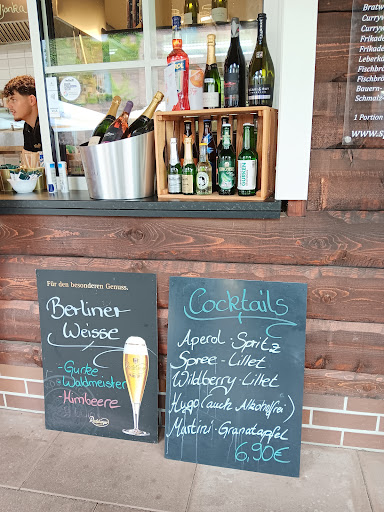 Bratw
Curryw
Curryw
Frikade
Frikade
Leberkä
Fischbrö
Fischbrö
Bauern-
Schmalz
1 Portion
www.s
Für den besonderen Genuss.
Berliner
Weisse
-Gurke
-Waldmeister
-Himbeere
Cocktails
Aperol-Spritz
Spree-Lillet
Wildberry-Lillet
Hugo (auch Alkoholfrei)
Martini-Granatapfel
6,90€